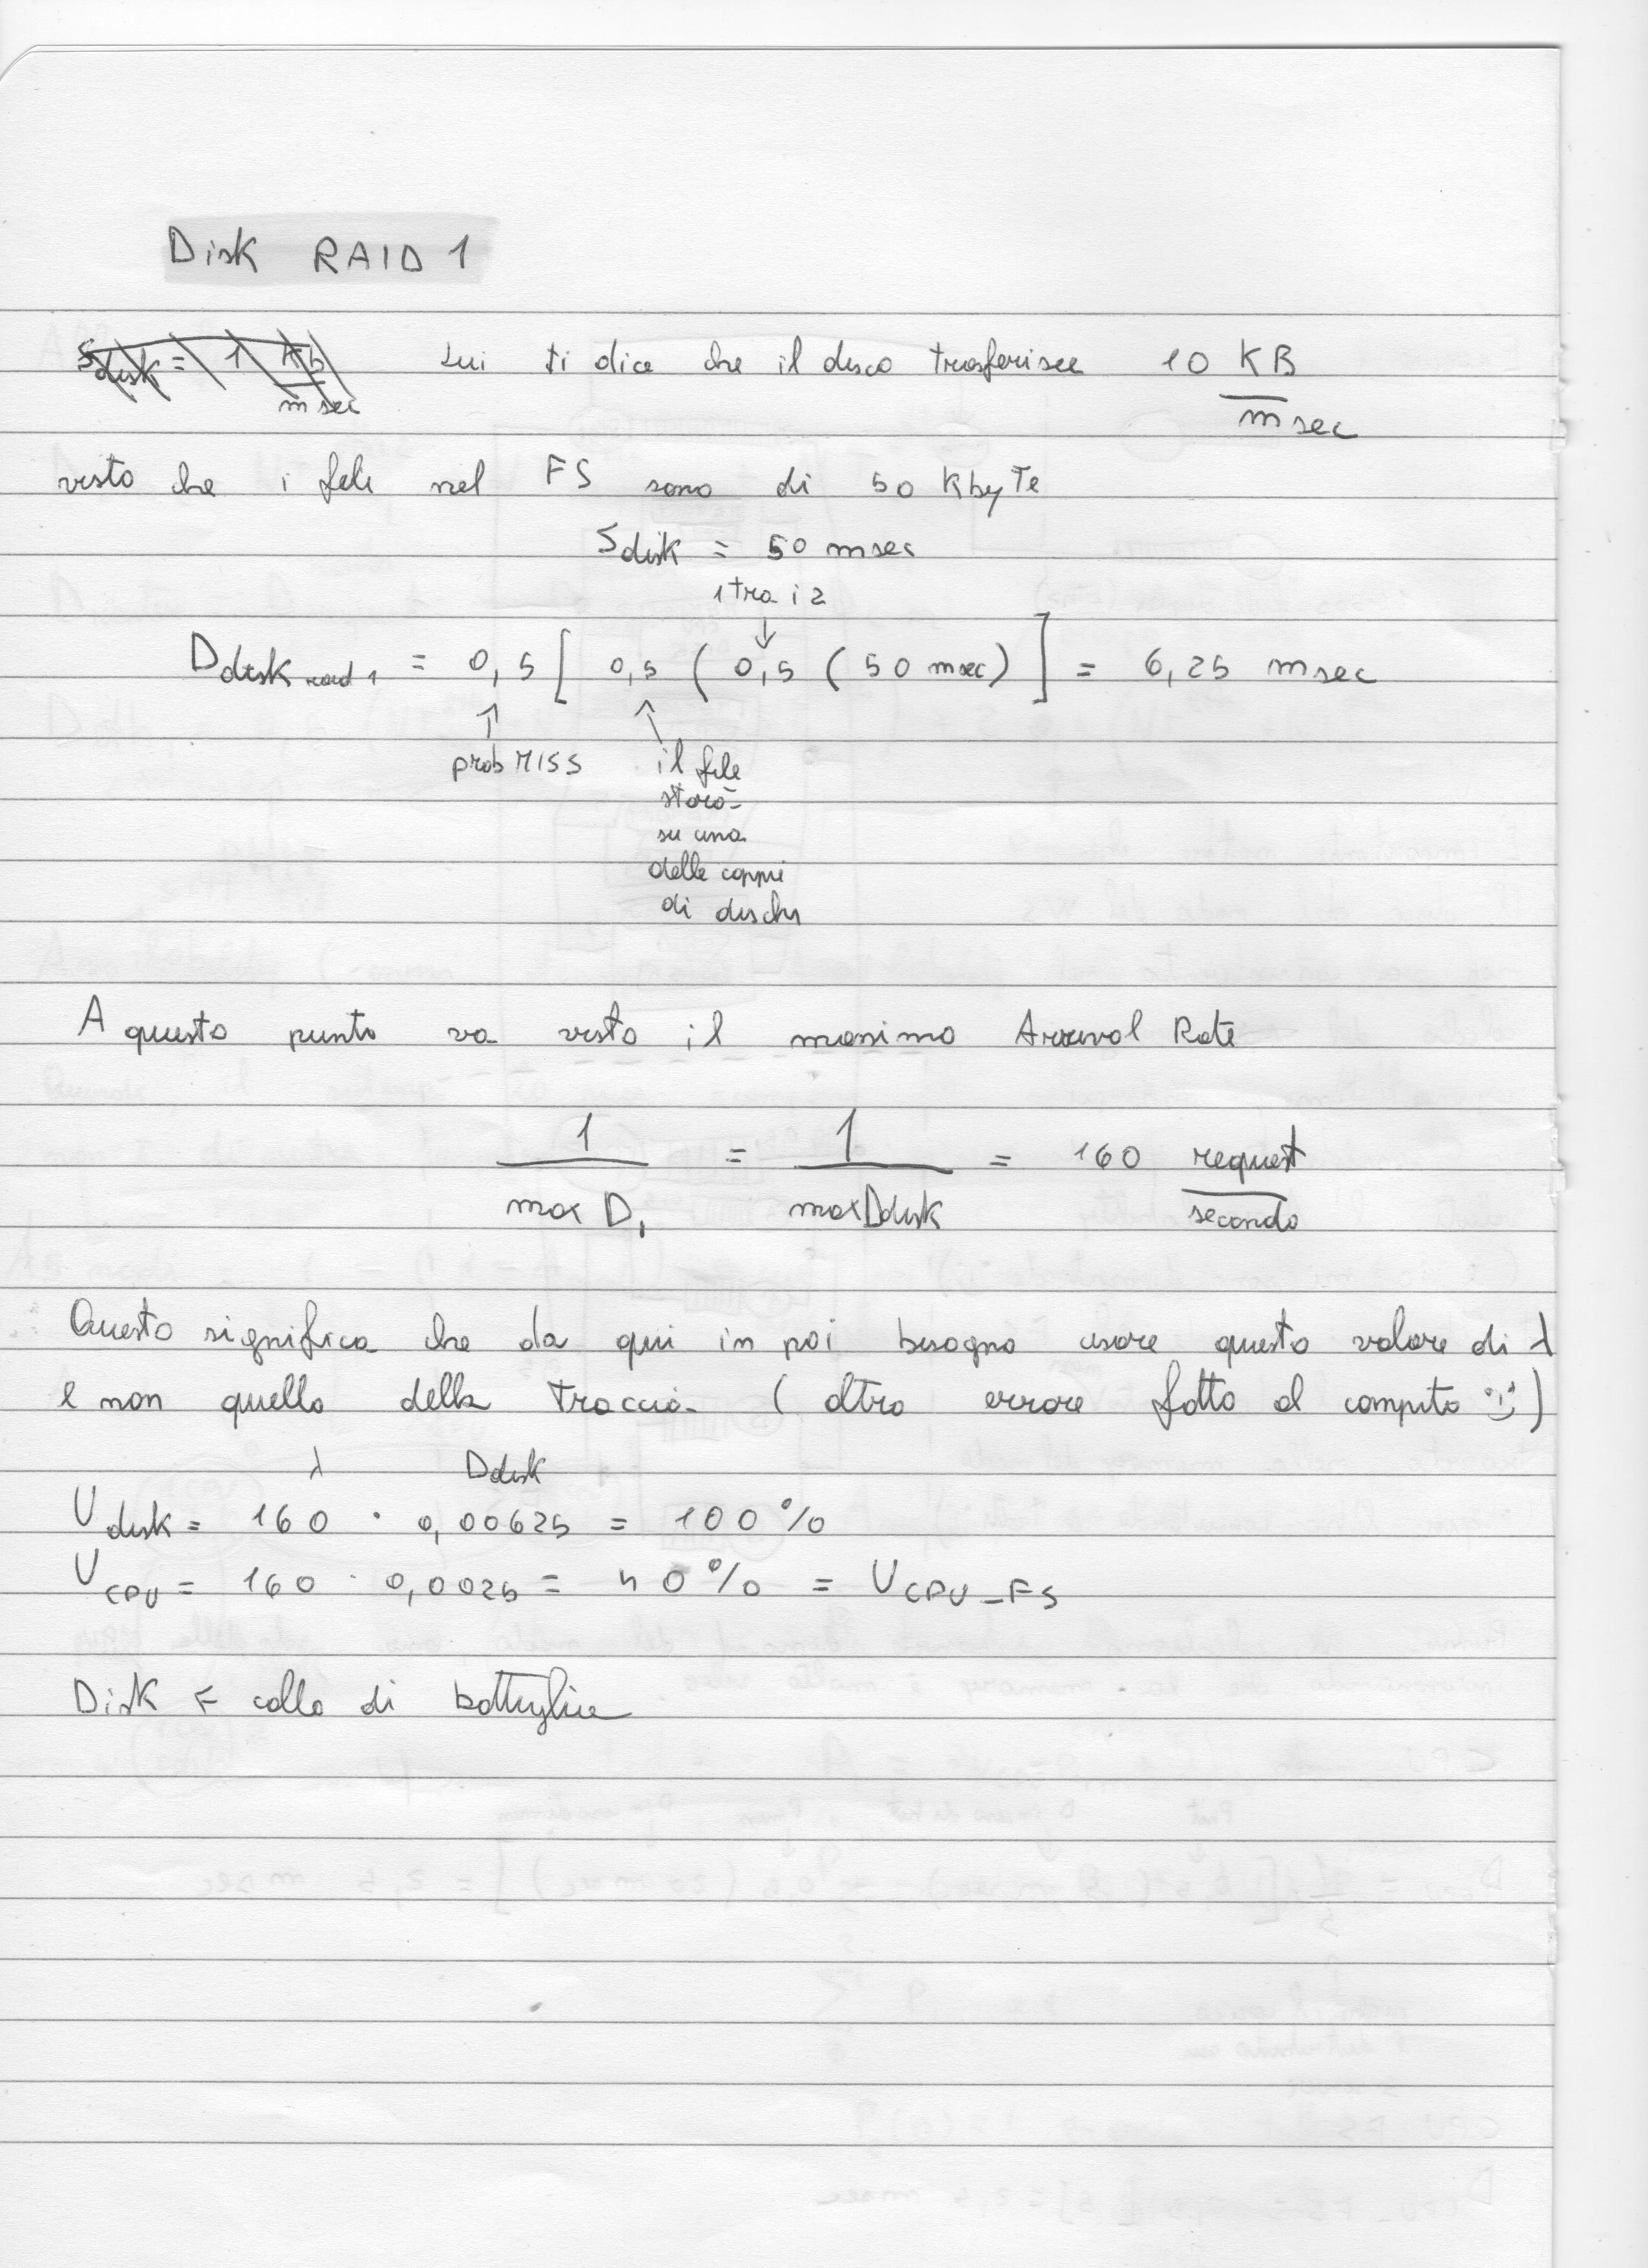 Disk RAID 1
Sdisk = 1 Kb / msec Lui ti dice che il disco trasferisce 10 KB / msec
visto che i file nel FS sono di 50 Kbyte
Sdisk = 50 msec
1 tra i 2
↓
Ddisk raid 1 = 0,5 [ 0,5 ( 0,5 ( 50 msec) ] = 6,25 msec
↑ ↑
prob MISS il file
starà
su una
delle coppi
di dischi
A questo punto va visto il massimo Arrival Rate
1 / max Di = 1 / max Ddisk = 160 request / secondo
Questo significa che da qui in poi bisogna usare questo valore di λ
e non quello della traccia (altro errore fatto al compito :))
λ Ddisk
Udisk = 160 · 0,00625 = 100 %
UCPU = 160 · 0,0025 = 40 % = UCPU_FS
Disk È collo di bottiglia